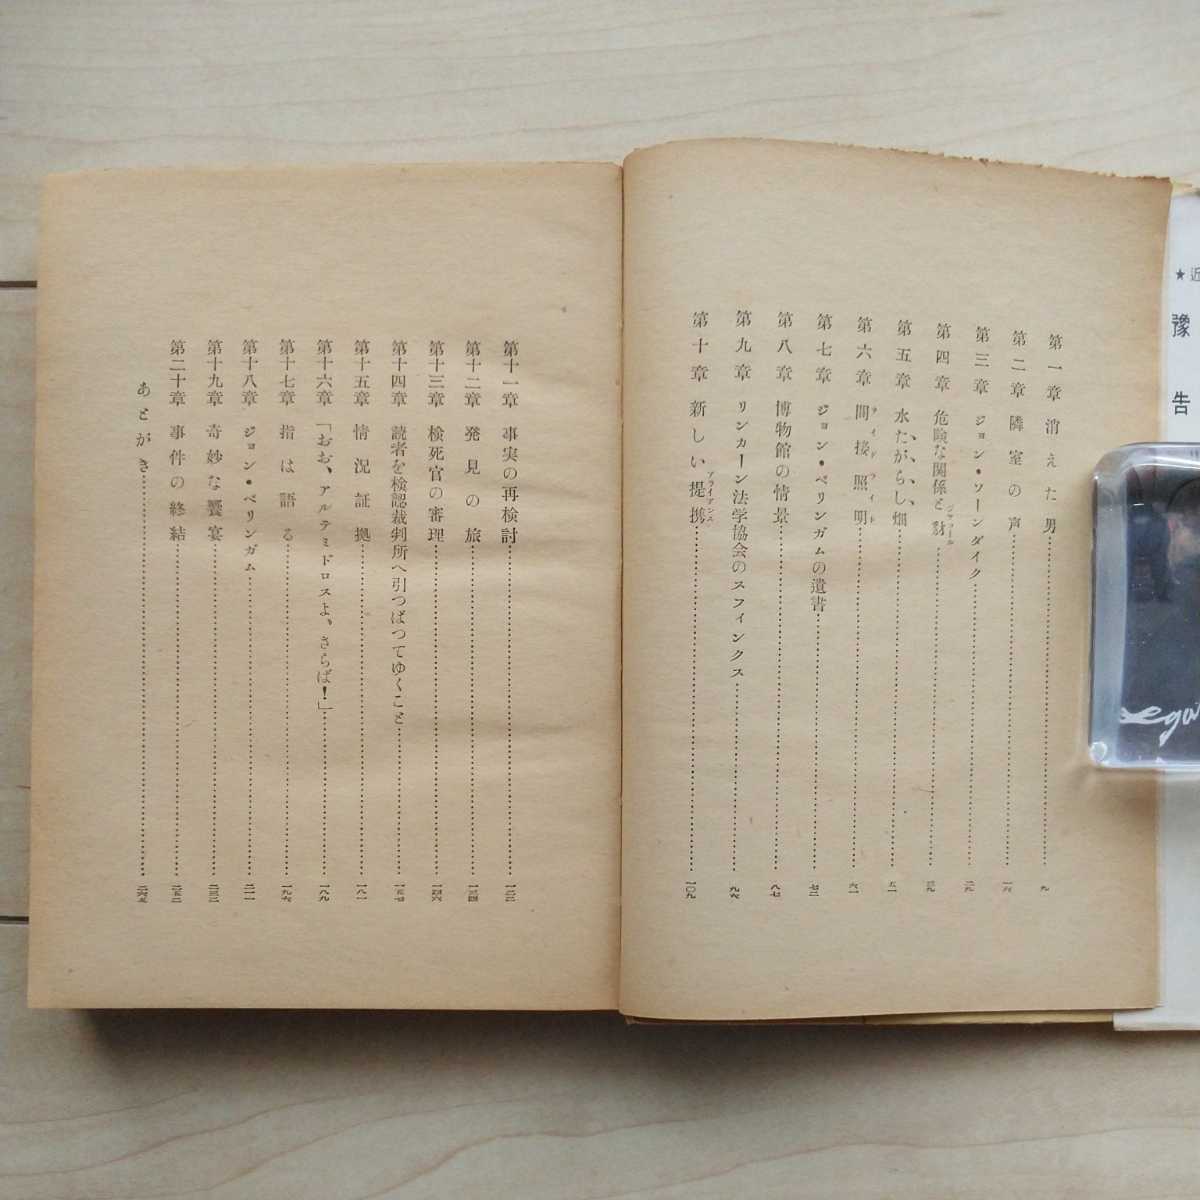 ★近
豫告
第一章 消えた男……九
第二章 隣室の声……一六
第三章 ジョン・ソーンダイク……二九
第四章 危険な関係と豺……三九
ジャッカール
第五章 水たがらし畑……五一
第六章 間接照明……六一
サイドライト
第七章 ジョン・ベリンガムの遺書……七二
第八章 博物館の情景……八七
第九章 リンカーン法学協会のスフィンクス……九七
第十章 新しい提携……一〇九
アライアンス
第十一章 事実の再検討……一二二
第十二章 発見の旅……一三四
第十三章 検死官の審理……一四六
第十四章 読者を検認裁判所へ引つぱつてゆくこと……一五七
第十五章 情況証拠……一八一
第十六章 「おお、アルテミドロスよ、さらば！」……一八九
第十七章 指は語る……一九六
第十八章 ジョン・ベリンガム……二一一
第十九章 奇妙な饗宴……二三二
第二十章 事件の終結……二五二
あとがき……二六五